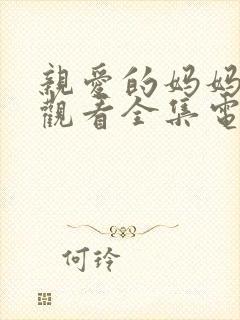 親愛的妈妈
觀看全集電
何玲